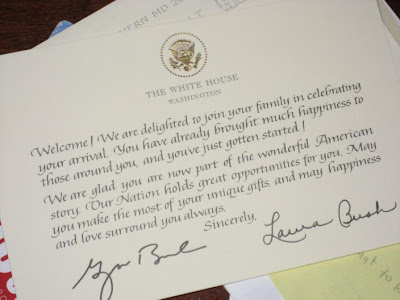 ERN MO
THE WHITE HOUSE
WASHINGTON
Welcome! We are delighted to join your family in celebrating
your arrival. You have already brought much happiness to
those around you, and you've just gotten started!
We are glad you are now part of the wonderful American
story. Our Nation holds great opportunities for you. May
you make the most of your unique gifts, and may happiness
and love surround you always.
Sincerely,
Laura Bush